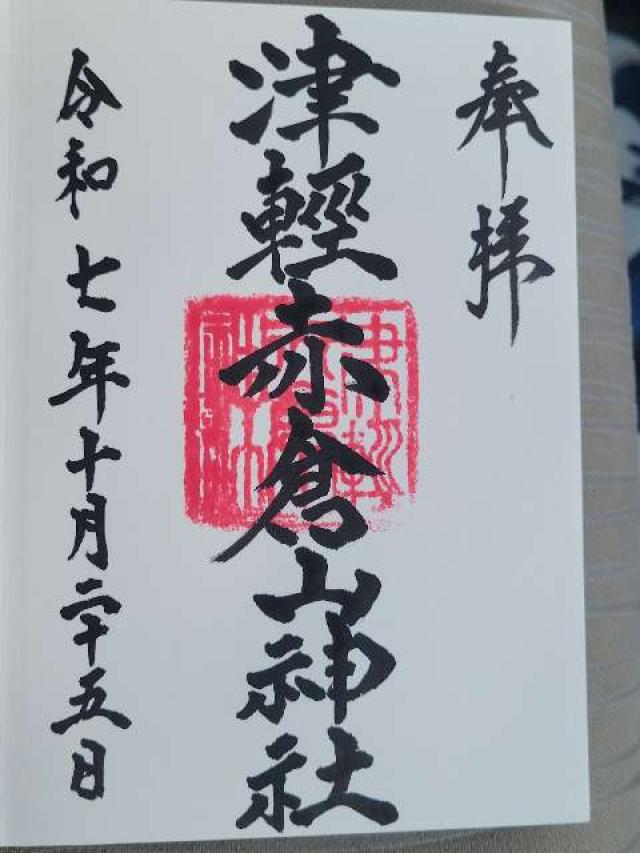 奉拝
津輕赤倉山神社
令和七年十月二十五日